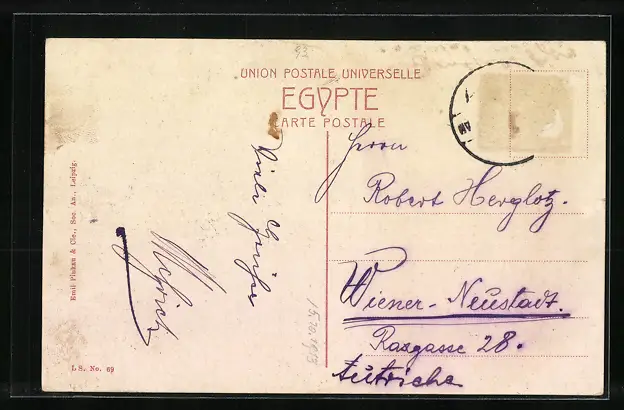 UNION POSTALE UNIVERSELLE
EGYPTE
CARTE POSTALE
AM
Herrn
Robert Herglotz.
Wiener-Neustadt.
Raxgasse 28.
Autriche
Viele Grüße
Emil Pinkau & Cie., Soc. An., Leipzig.
L S. No. 69